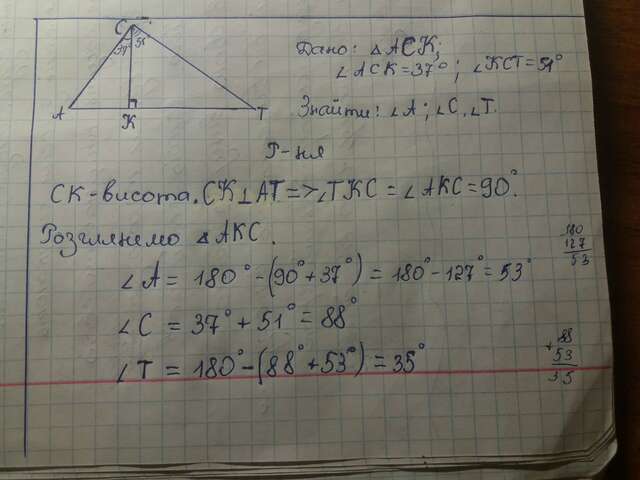 C
37 51
A K T
Дано: △ACK;
∠ACK=37°; ∠KCT=51°
Знайти: ∠A; ∠C, ∠T.
Р-ння
CK-висота. CK⊥AT=>∠TKC=∠AKC=90°.
Розглянемо △AKC.
∠A = 180°-(90°+37°) = 180°-127°=53°
180
127
53
∠C = 37°+51°=88°
∠T = 180°-(88°+53°) = 35°
+88
53
35